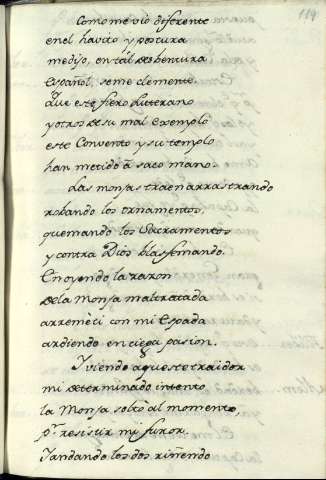 119
Como me vio diferente
en el havito y postura
me dijo, en tal desbentura
español, seme clemente.
Que este fiero Lutterano
y otros de su mal exemplo
este Convento y su templo
han metido à saco mano.
Las monjas traen arrastrando
robando los ornamentos,
quemando los Sacramentos
y contra Dios blasfemando.
En oyendo la razon
de la Monja maltratada
arremeti con mi Espada
ardiendo en ciega pasion.
Y viendo aqueste traidor
mi determinado intento
la Monja soltò al momento,
pr. resistir mi furor.
Y andando los dos riñendo